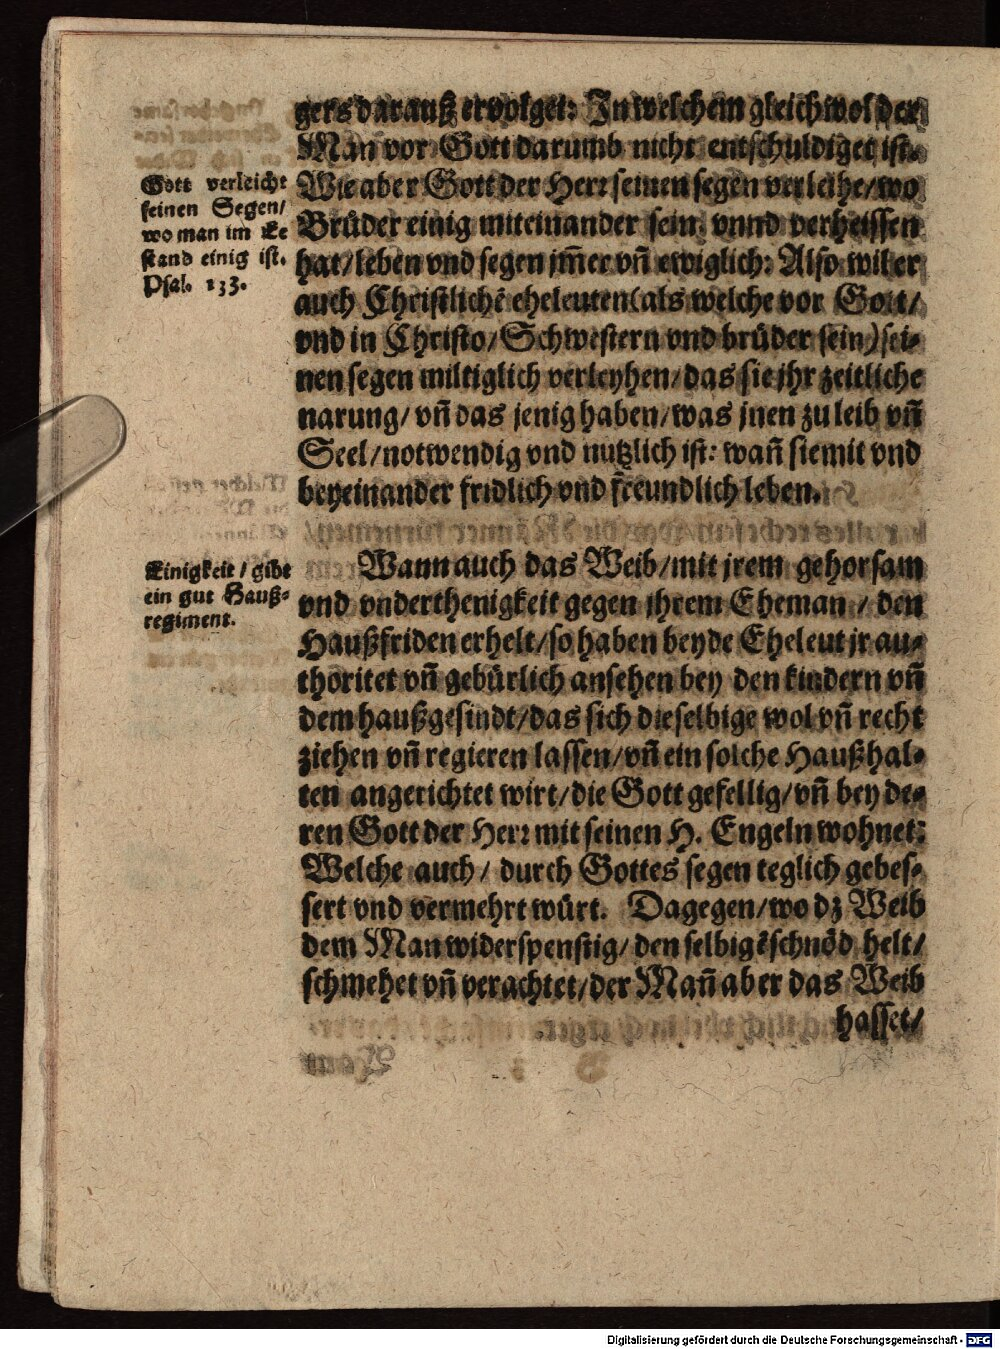 gers darauß ervolget: In welchem gleichwol der
Man vor Gott darumb nicht entschuldiget ist.
Wie aber Gott der Herr seinen segen verleihe/ wo
Brüder einig miteinander sein/ vnnd verheissen
hat/ leben vnd segen jm̃er vñ ewiglich: Also wil er
auch Christlichẽ eheleuten (als welche vor Gott/
vnd in Christo/ Schwestern vnd brüder sein) sei-
nen segen miltiglich verleyhen/ das sie jhr zeitliche
narung/ vñ das jenig haben/ was jnen zu leib vñ
Seel/ notwendig vnd nutzlich ist: wañ sie mit vnd
beyeinander fridlich vnd freundlich leben.
Gott verleicht
seinen Segen/
wo man im Ee
stand einig ist.
Psal. 133.
Wann auch das Weib/ mit jrem gehorsam
vnd vnderthenigkeit gegen jhrem Eheman / den
Haußfriden erhelt/ so haben beyde Eheleut jr au-
thoritet vñ gebürlich ansehen bey den kindern vñ
dem haußgesindt/ das sich dieselbige wol vñ recht
ziehen vñ regieren lassen/ vñ ein solche Haußhal-
ten angerichtet wirt/ die Gott gefellig/ vñ bey de-
ren Gott der Herr mit seinen H. Engeln wohnet:
Welche auch / durch Gottes segen teglich gebes-
sert vnd vermehrt würt. Dagegen/ wo dz Weib
dem Man widerspenstig/ den selbigẽ schnöd helt/
schmehet vñ verachtet/ der Mañ aber das Weib
hasset/
Einigkeit / gibt
ein gut Hauß-
regiment.
Digitalisierung gefördert durch die Deutsche Forschungsgemeinschaft - DFG